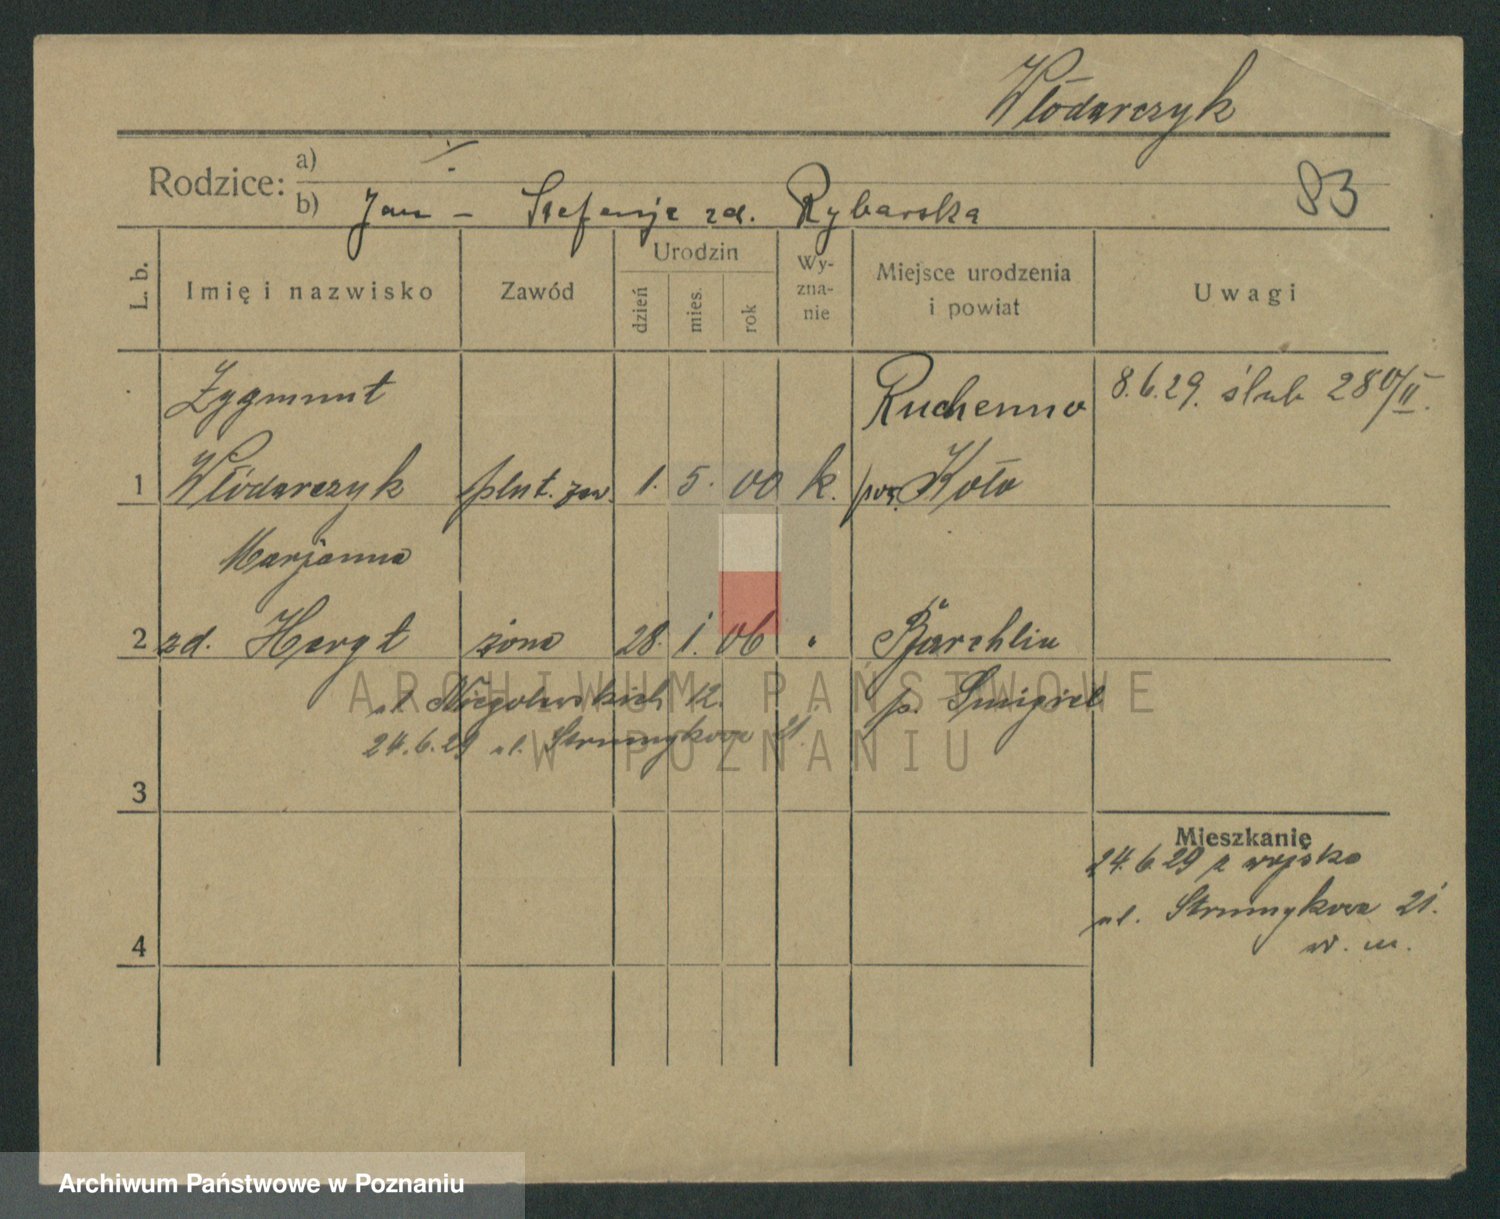 Włodarczyk
Rodzice: a)
b) Jan - Stefanja zd. Rybarska
83
L. b.
Imię i nazwisko
Zawód
Urodzin
dzień
mies.
rok
Wy-
zna-
nie
Miejsce urodzenia
i powiat
Uwagi
Zygmunt
Ruchenno
8.6.29. ślub 280/II.
1 Włódarczyk plut. zaw. 1. 5. 00 k. pow. Koło
Marjanna
2 zd. Hergt żona 28. 1. 06 " Barchlin
ul. Niegolewskich 12. p. Śmigiel
24.6.29 ul. Strumykowa 21.
3
Mieszkanie
24.6.29 z wojska
ul. Strumykowa 21.
w. m.
4
ARCHIWUM PAŃSTWOWE
W POZNANIU
Archiwum Państwowe w Poznaniu